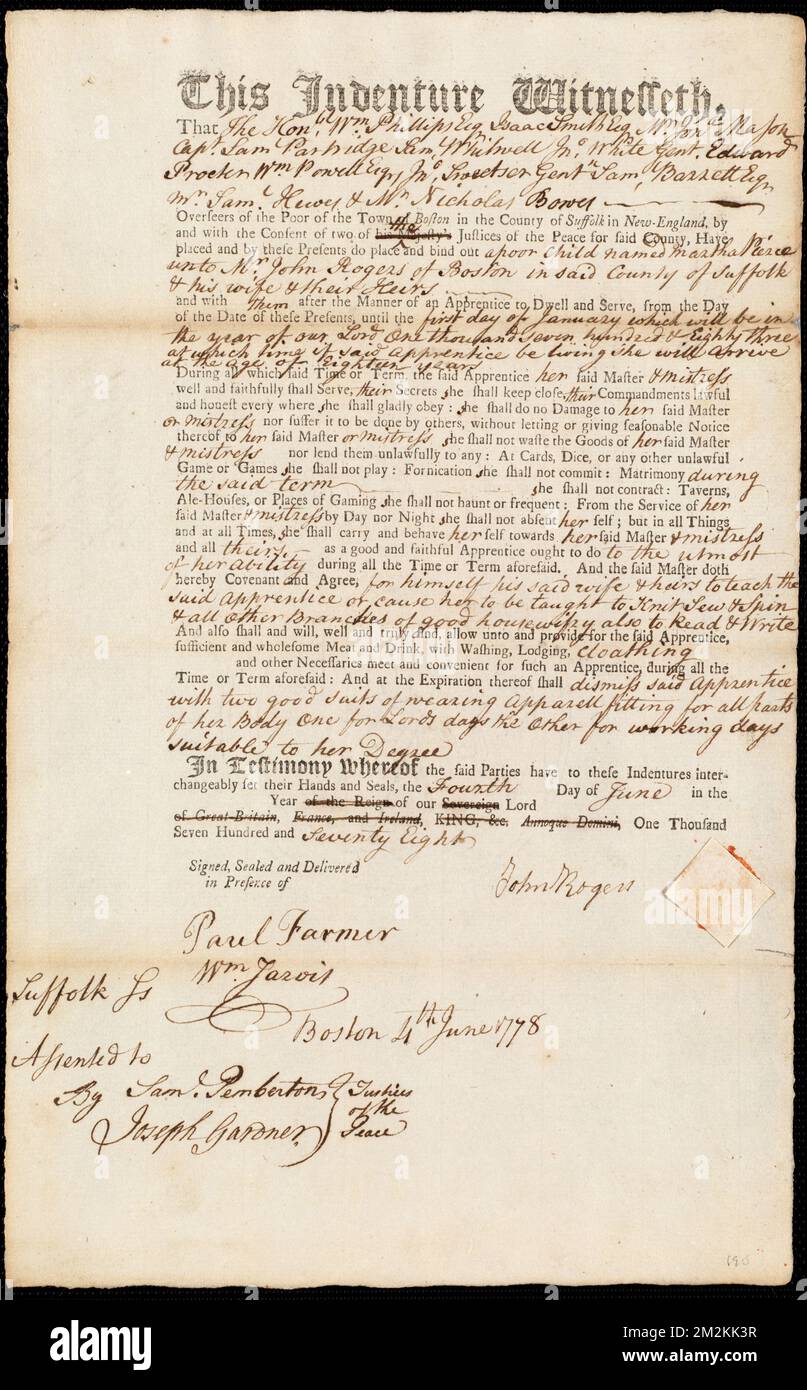 This Indenture Witnesseth,
That The Honbl Wm Phillips Esq Isaac Smith Esq Mr Jonan Mason
Capt Saml Partridge Saml Whitwell Jno White Gent. Edward
Procter Wm Powell Esq Jno Sweetser Gentn Saml Barrett Esq
Mr Saml Hewes & Mr Nicholas Bowes
Overseers of the Poor of the Town of Boston in the County of Suffolk in New-England, by
and with the Consent of two of his Majesty's the Justices of the Peace for said County, Have
placed and by these Presents do place and bind out a poor Child named Martha Peirce
unto Mr John Rogers of Boston in said County of Suffolk
& his wife & their Heirs
and with them after the Manner of an Apprentice to Dwell and Serve, from the Day
of the Date of these Presents, until the first day of January which will be in
the year of our Lord One thousand seven hundred & Eighty three
at which time if said Apprentice be living she will arrive
at the age of Eighteen years
During all which said Time or Term, the said Apprentice her said Master & mistress
well and faithfully shall Serve, their Secrets she shall keep close, their Commandments lawful
and honest every where she shall gladly obey: she shall do no Damage to her said Master
or mistress nor suffer it to be done by others, without letting or giving seasonable Notice
thereof to her said Master or mistress she shall not waste the Goods of her said Master
& mistress nor lend them unlawfully to any: At Cards, Dice, or any other unlawful
Game or Games she shall not play: Fornication she shall not commit: Matrimony during
the said term she shall not contract: Taverns,
Ale-Houses, or Places of Gaming she shall not haunt or frequent: From the Service of her
said Master & mistress by Day nor Night she shall not absent her self; but in all Things
and at all Times, she shall carry and behave her self towards her said Master & mistress
and all theirs, as a good and faithful Apprentice ought to do to the utmost
of her ability during all the Time or Term aforesaid. And the said Master doth
hereby Covenant and Agree, for himself his said wife & heirs to teach the
said Apprentice or cause her to be taught to Knit Sew & Spin
& all other Branches of good housewifry also to Read & Write
And also shall and will, well and truly find, allow unto and provide for the said Apprentice,
sufficient and wholesome Meat and Drink, with Washing, Lodging, Cloathing
and other Necessaries meet and convenient for such an Apprentice, during all the
Time or Term aforesaid: And at the Expiration thereof shall dismiss said Apprentice
with two good suits of wearing Apparell fitting for all parts
of her Body One for Lords days the Other for working days
suitable to her Degree
In Testimony whereof the said Parties have to these Indentures inter-
changeably set their Hands and Seals, the Fourth Day of June in the
Year of the Reign of our Sovereign Lord
of Great-Britain, France, and Ireland, KING, &c. Annoque Domini, One Thousand
Seven Hundred and Seventy Eight
Signed, Sealed and Delivered
in Presence of
John Rogers
Paul Farmer
Wm Jarvis
Suffolk Ss
Boston 4th June 1778
Assented to
By Saml Pemberton Justices
of the
Joseph Gardner Peace
190
alamy
Image ID: 2M2KK3R
www.alamy.com